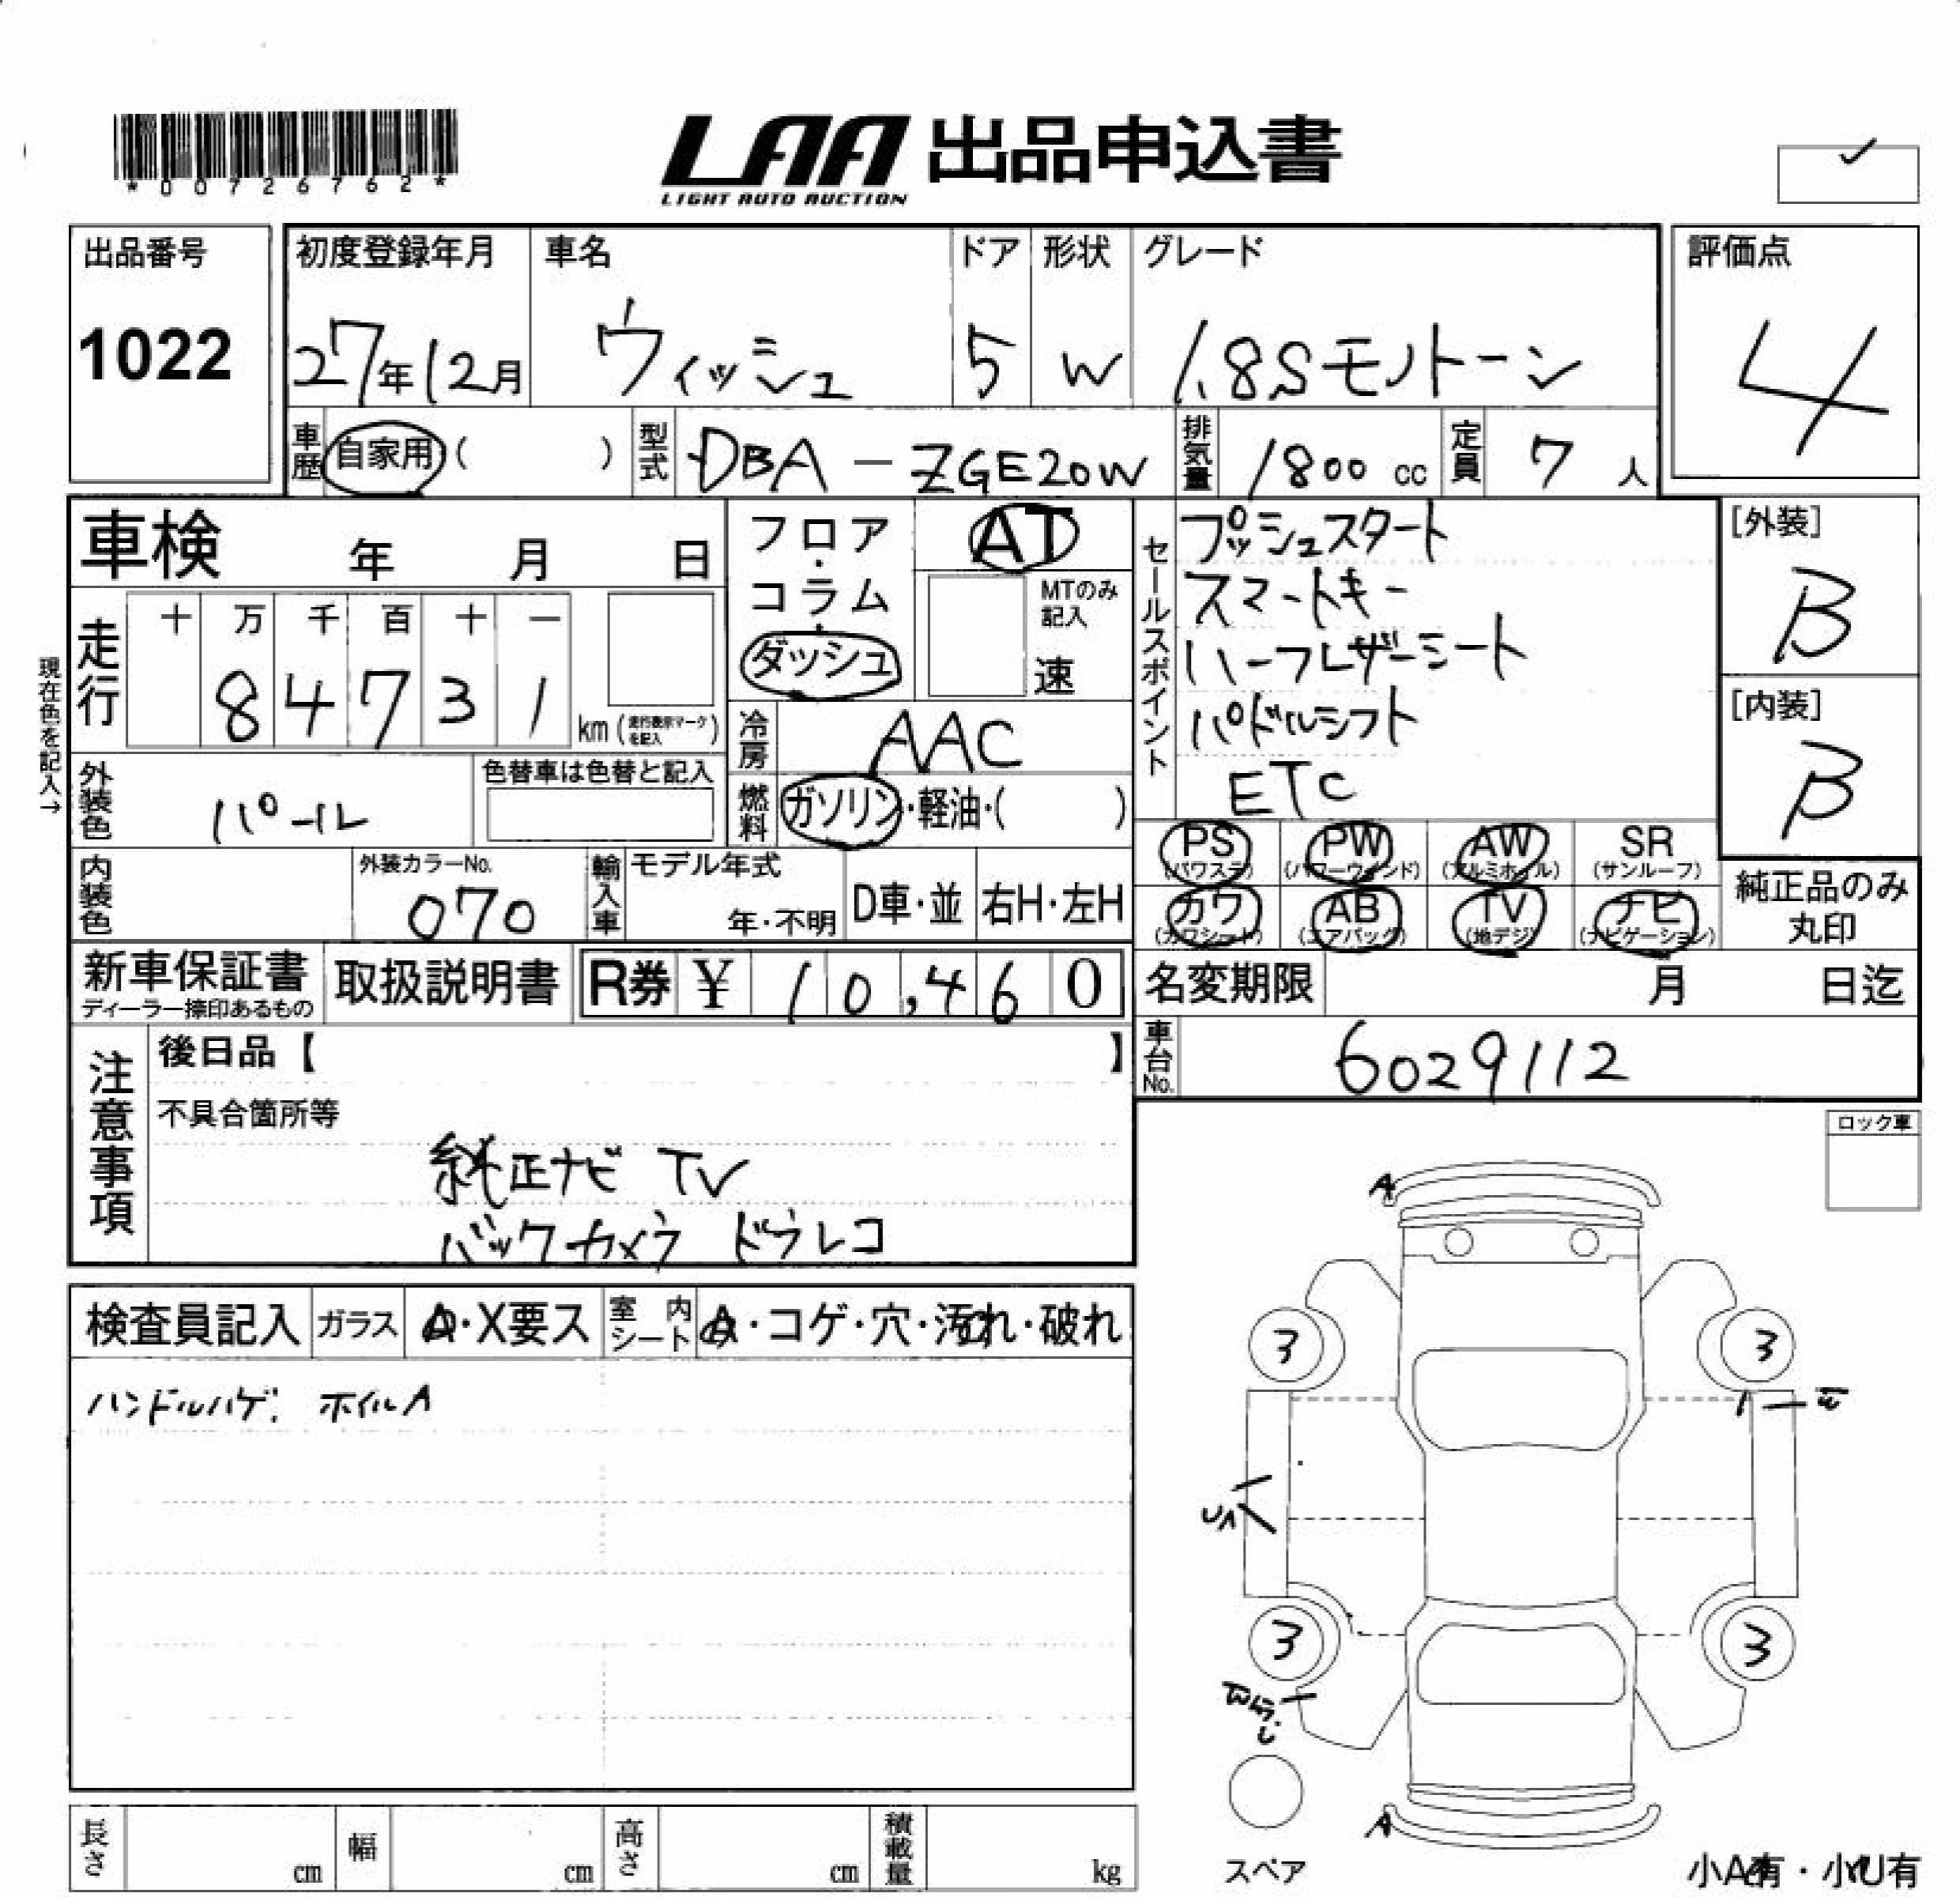 *00726762*
LAA 出品申込書
LIGHT AUTO AUCTION
出品番号
1022
初度登録年月
27年12月
車名
ウィッシュ
ドア
5
形状
W
グレード
1.8Sモノトーン
評価点
4
車歴
自家用 ( )
型式
DBA - ZGE20W
排気量
1800 cc
定員
7 人
車検 年 月 日
走行
十 万 千 百 十 一
8 4 7 3 1
km (走行表示マークを記入)
現在色を記入→
外装色
パール
色替車は色替と記入
内装色
外装カラーNo.
070
輸入車
モデル年式
年・不明
D車・並
右H・左H
フロア・コラム・ダッシュ
AT
MTのみ記入
速
冷房
AAC
燃料
ガソリン・軽油・( )
セールスポイント
プッシュスタート
スマートキー
ハーフレザーシート
パドルシフト
ETC
PS (パワステ)
PW (パワーウインド)
AW (アルミホイル)
SR (サンルーフ)
カワ (カワシート)
AB (エアバッグ)
TV (地デジ)
ナビ (ナビゲーション)
[外装]
B
[内装]
B
純正品のみ
丸印
新車保証書
ディーラー捺印あるもの
取扱説明書
R券 ¥ 10,460
名変期限 月 日迄
車台No.
6029112
注意事項
後日品【 】
不具合箇所等
純正ナビ TV
バックカメラ ドラレコ
検査員記入
ガラス
A・X要ス
室内シート
A・コゲ・穴・汚れ・破れ
ハンドルハゲ. ホイルA
ロック車
A
3
3
UA
3
3
A
スペア
小A有・小U有
長さ cm
幅 cm
高さ cm
積載量 kg